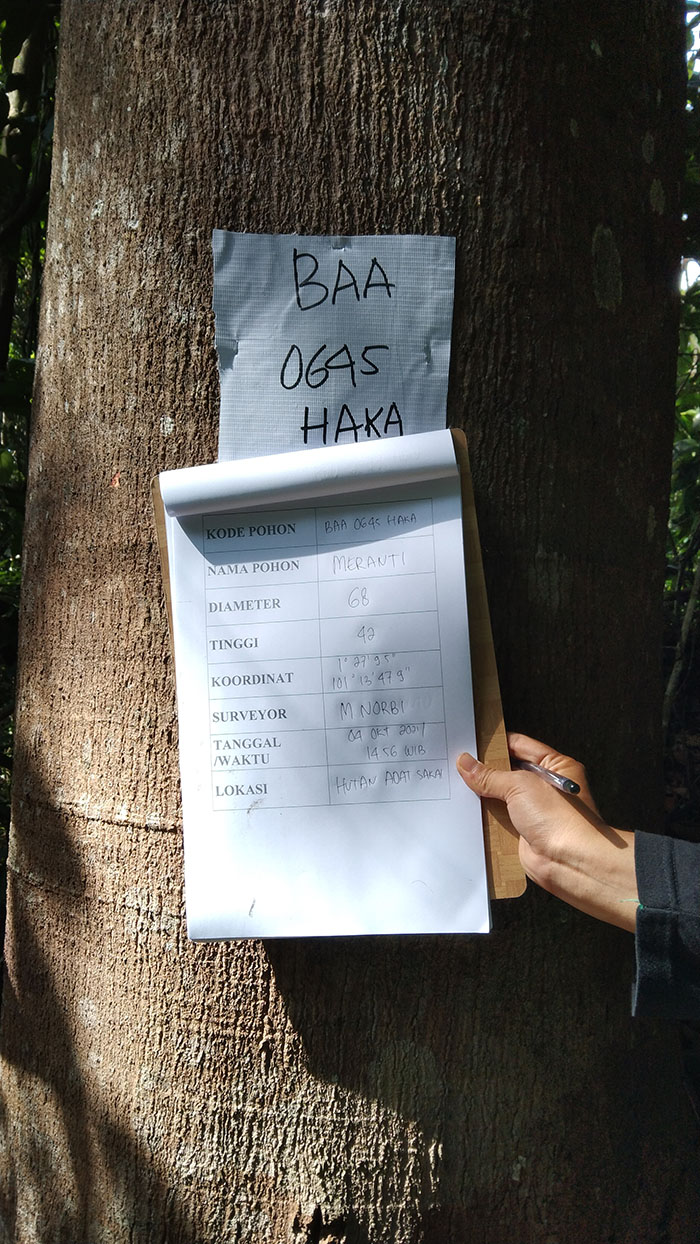 BAA
0645
HAKA
KODE POHON BAA 0645 HAKA
NAMA POHON MERANTI
DIAMETER 68
TINGGI 42
KOORDINAT 1° 27' 95"
101° 13' 47.9"
SURVEYOR M NORBI
TANGGAL 04 OKT
/WAKTU 14 56 WIB
LOKASI HUTAN ADAT SAKAI